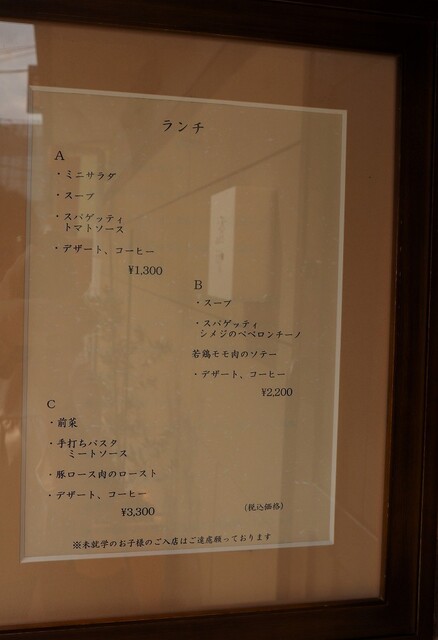 ランチ
A
・ミニサラダ
・スープ
・スパゲッティ
トマトソース
・デザート、コーヒー
¥1,300
B
・スープ
・スパゲッティ
シメジのペペロンチーノ
若鶏モモ肉のソテー
・デザート、コーヒー
¥2,200
C
・前菜
・手打ちパスタ
ミートソース
・豚ロース肉のロースト
・デザート、コーヒー
¥3,300
(税込価格)
※未就学のお子様のご入店はご遠慮願っております